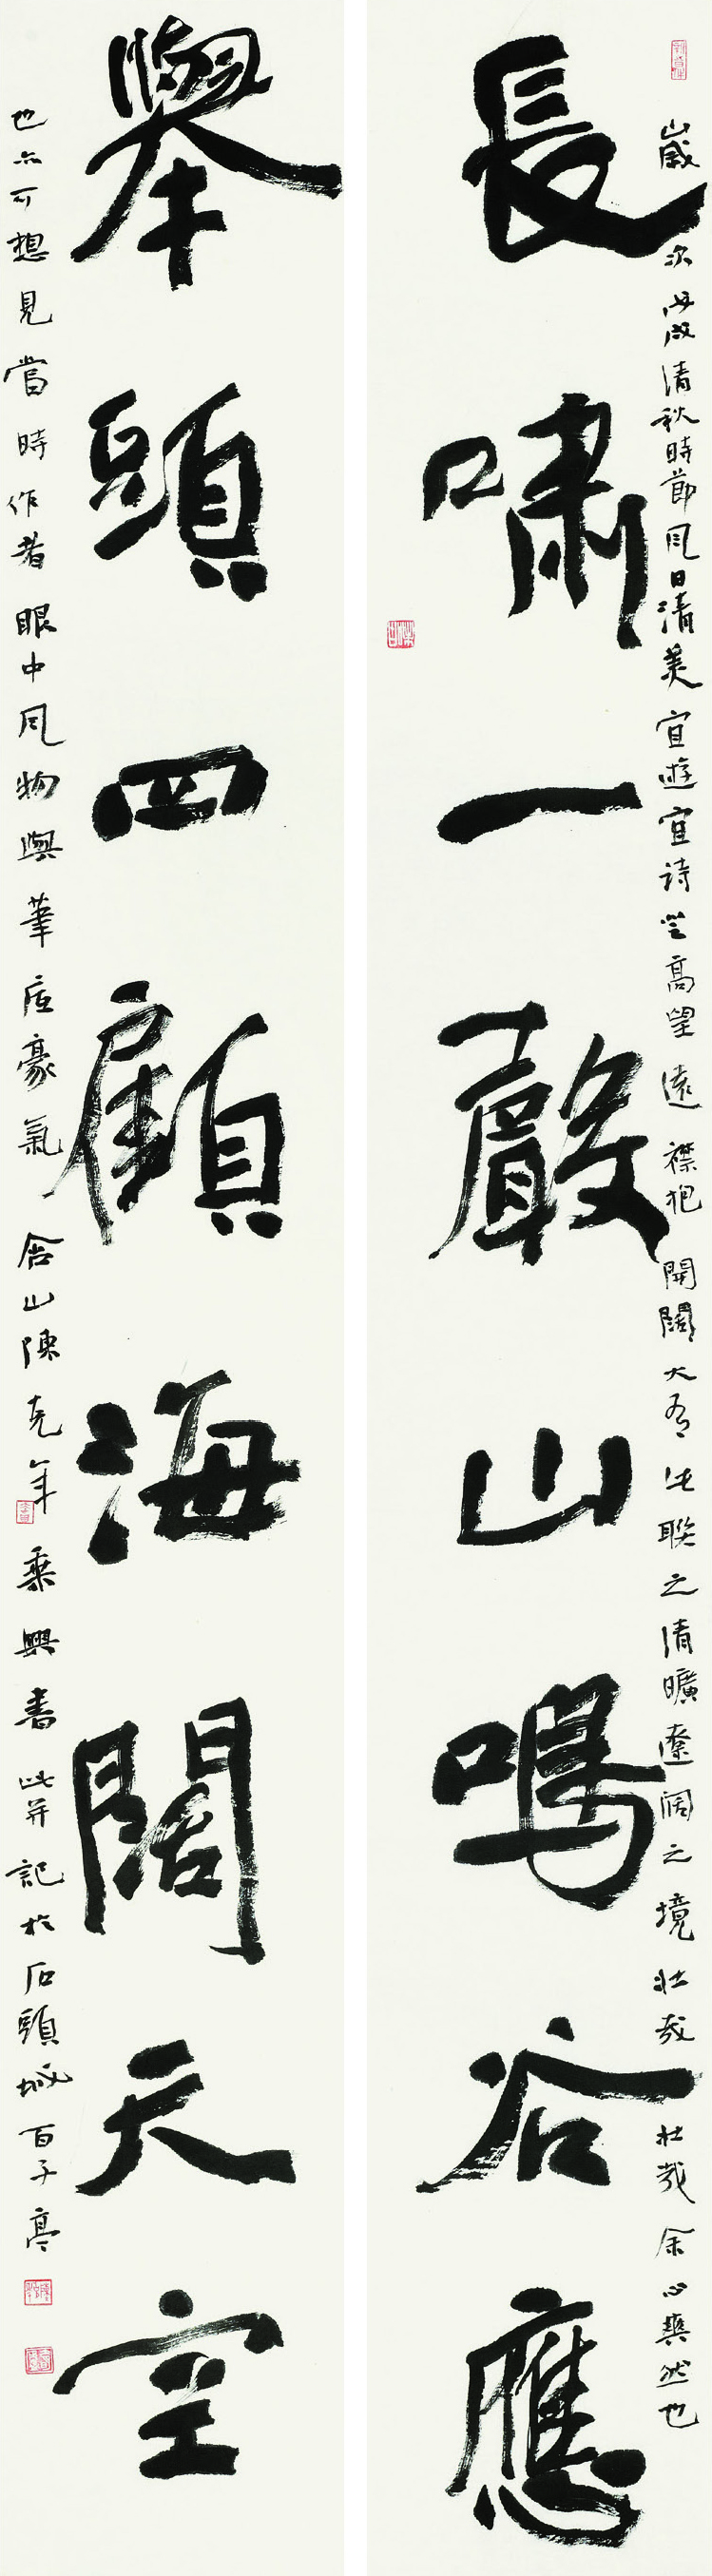 長嘯一聲山鳴谷應
舉頭四顧海闊天空
歲次丙戌清秋時節風日清美宜遊宜诗登高望遠襟抱開闊大有此聯之清曠遼阔之境壯哉壯哉余心樂然也
也亦可想見當時作者眼中風物與筆底豪氣含山陳克年乘興書此并記於石頭城百子亭